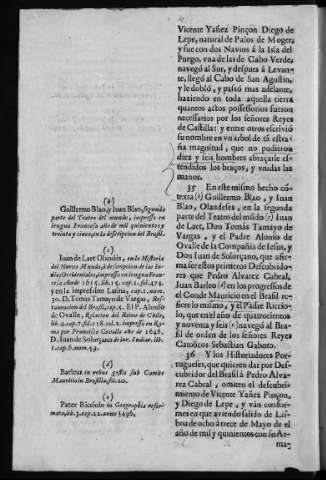 Vicente Yañez Pinçon Diego de
Lepe, natural de Palos de Moger,
y fue con dos Navios à la Isla del
Fuego, vna de las de Cabo Verde,
navegò al Sur, y despues à Levan-
te, llegò al Cabo de San Agustin,
y le doblò, y passò mas adelante,
haziendo en toda aquella tierra
quantos actos possessorios fueron
necessarios por los señores Reyes
de Castilla: y entre otros escriviò
su nombre en vn arbol de tã estra-
ña magnitud, que no pudieron
diez y seis hombres abraçarle es-
tendidos los braços, y vnidas las
manos.
35 En este mismo hecho cõ-
texta (b) Guillermo Blao, y Iuan
Blao, Olandeses, en la segunda
parte del Teatro del mũdo (c) Iuan
de Laet, Don Tomàs Tamayo de
Vargas, y el Padre Alonso de
Ovalle de la Compañia de Iesus, y
Don Iuan de Solorçano, que afir-
ma ser estos primeros Descubridores
que Pedro Alvarez Cabral,
Iuan Barleo (d) en los progressos de
el Conde Mauricio en el Brasil re-
fiere lo mismo, y el Padre Riccio-
lo, que en el año de quatrocientos
y noventa y seis (e) navegò al Bra-
sil de orden de los señores Reyes
Catolicos Sebastian Gaboto.
36 Y los Historiadores Por-
tugueses, que quieren dar por Des-
cubridor del Brasil à Pedro Alva-
rez Cabral, omiten el descubri-
miento de Vicente Yañez Pinçon,
y Diego de Lepe, y vàn confor-
mes en que aviendo salido de Lis-
boa de ocho à treze de Março de el
año de mil y quinientos con su Ar-
ma-
(b)
Guillermo Blao, y Iuan Blao, segunda
parte del Teatro del mundo, impresso en
lengua Francesa año de mil quinientos y
treinta y cinco, en la descripcion del Brasil.
(c)
Iuan de Laet Olandès, en la Historia
del Nuevo Mundo, ò descripcion de las In-
dias Occidentales, impresso en lengua Fran-
cesa, año de 1615. lib. 15. cap. 1. fol. 474.
y en la impression Latina, cap. 1. num.
30. D. Tomàs Tamayo de Vargas, Res-
tauracion del Brasil, cap. 5. El P. Alonso
de Ovalle, Relacion del Reino de Chile,
lib. 4. cap. 7. fol. 118. col. 2. impresso en Ro-
ma por Francisco Cavallo año de 1646.
D. Iuan de Solorçano de iur. Indiar. lib.
1. cap. 6. num. 59.
(d)
Barleus in rebus gestis sub Comite
Mauritio in Brasilia, fol. 20.
(e)
Pater Ricciolo in Geographia refor-
mata, lib. 3. cap. 22. anno 1496.